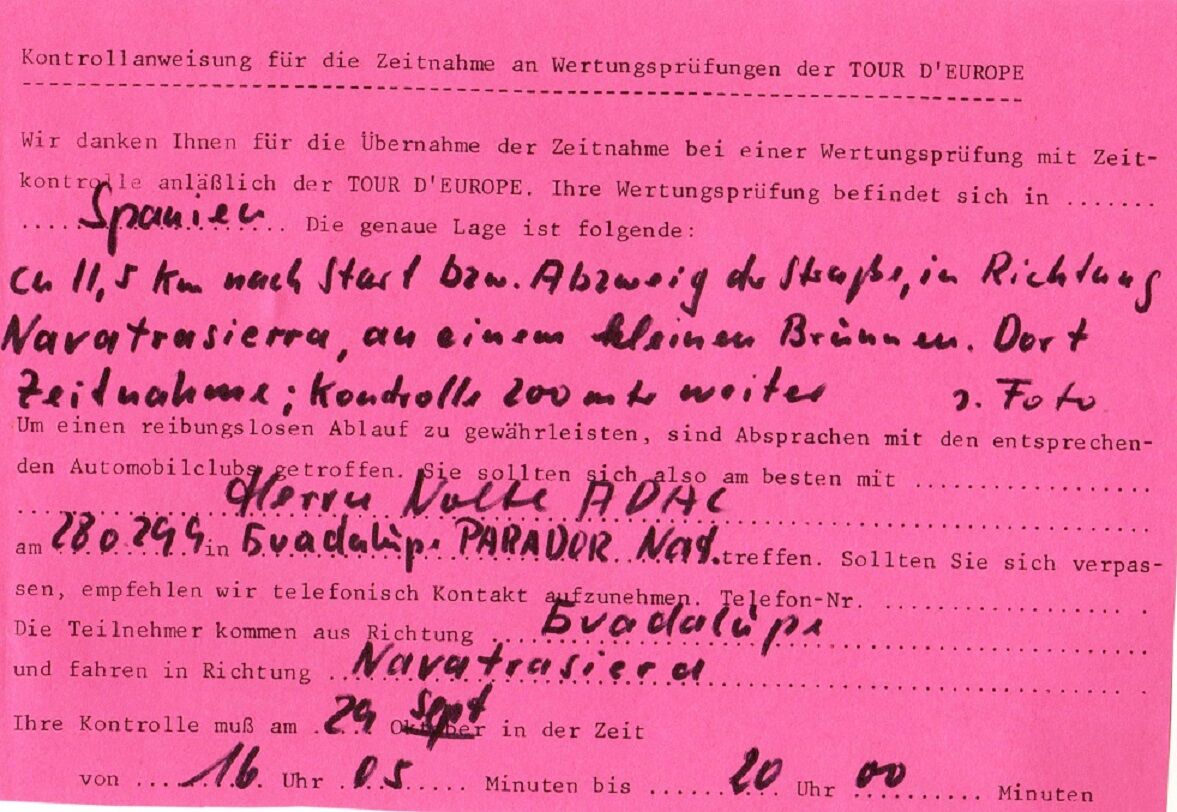 Kontrollanweisung für die Zeitnahme an Wertungsprüfungen der TOUR D'EUROPE
Wir danken Ihnen für die Übernahme der Zeitnahme bei einer Wertungsprüfung mit Zeit-
kontrolle anläßlich der TOUR D'EUROPE. Ihre Wertungsprüfung befindet sich in .......
Spanien Die genaue Lage ist folgende:
ca 11,5 Km nach Start bzw. Abzweig der Straße, in Richtung
Navatrasierra, an einem kleinen Brünnen. Dort
Zeitnahme; Kontrolle 200 mtr weiter s. Foto
Um einen reibungslosen Ablauf zu gewährleisten, sind Absprachen mit den entsprechen-
den Automobilclubs getroffen. Sie sollten sich also am besten mit ................
Herrn Nolte ADAC
am 28 0 in Guadalüpe PARADOR Nat. treffen. Sollten Sie sich verpas-
sen, empfehlen wir telefonisch Kontakt aufzunehmen. Telefon-Nr. ................
Die Teilnehmer kommen aus Richtung Guadalüpe
und fahren in Richtung Navatrasiera
Ihre Kontrolle muß am 29 Sept Oktober in der Zeit
von 16 Uhr 05 Minuten bis 20 Uhr 00 Minuten